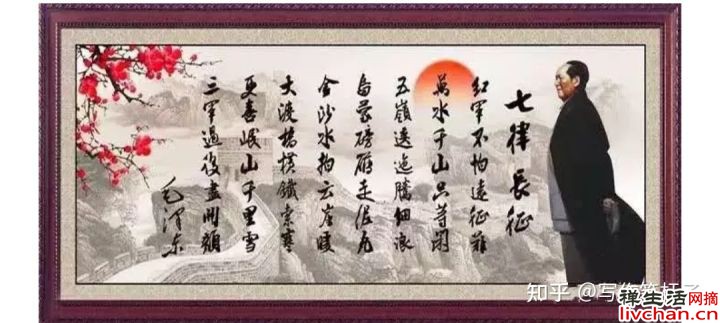 七律 長征
紅軍不怕遠征難
萬水千山只等閑
五嶺逶迤騰細浪
烏蒙磅礴走泥丸
金沙水拍云崖暖
大渡橋橫鐵索寒
更喜岷山千里雪
三軍過後盡開顏
毛澤東
知乎 @写作
禅生活网摘
livchan.cn